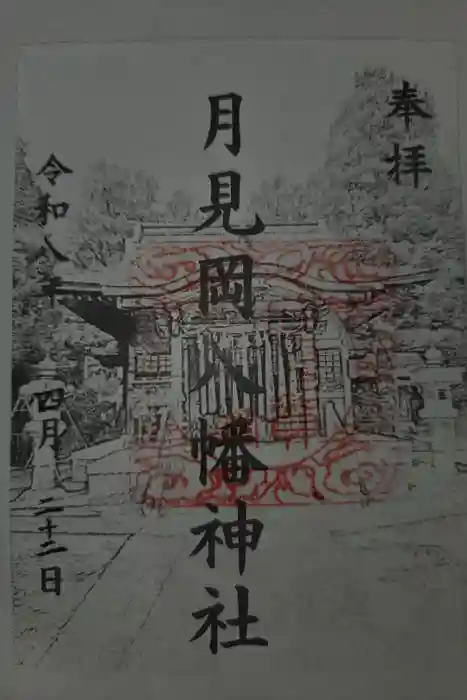 奉拝
月見岡八幡神社
令和八年
四月
二十二日